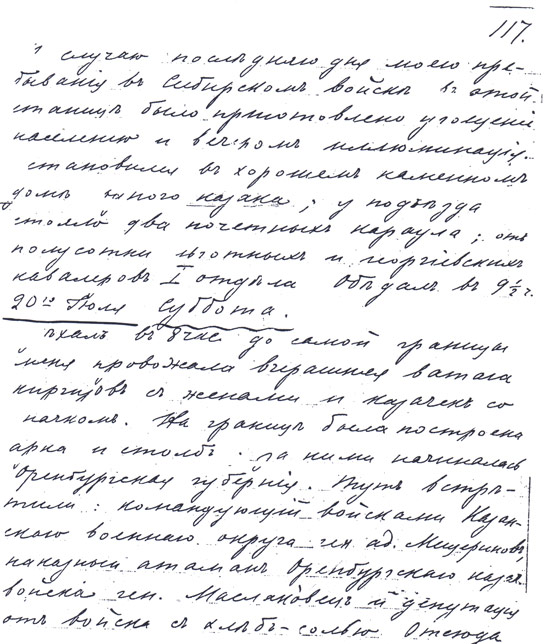 117.
случаю послѣдняго дня моего пре-
быванія въ Сибирскомъ войскѣ въ этой
станицѣ было приготовлено угощеніе
населенію и вечеромъ иллюминація.
становился въ хорошемъ каменномъ
домѣ казака; у подъѣзда
стояло два почетныхъ караула; отъ
полусотни льготныхъ и георгіевскихъ
кавалеровъ I отдѣла Обѣдалъ въ 9 1/2 ч.
20го Іюля Суббота.
ѣхалъ въ 8 час до самой границы
меня провожала вчерашняя ватага
киргизовъ съ женами и казачекъ со
значкомъ. На границѣ была построена
арка и столбъ. за ними начиналась
Оренбургская губернія. Тутъ встрѣ-
тили: командующій войсками Казан-
скаго военнаго округа ген. ад. Мещериновъ,
наказный атаманъ Оренбургскаго казач.
войска ген. Маслаковецъ и депутація
отъ войска съ хлѣбъ-солью Отсюда